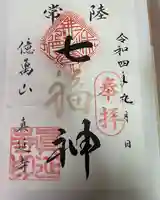 常陸
令和四年九月 日
奉拝
七福神
億萬山
真延寺